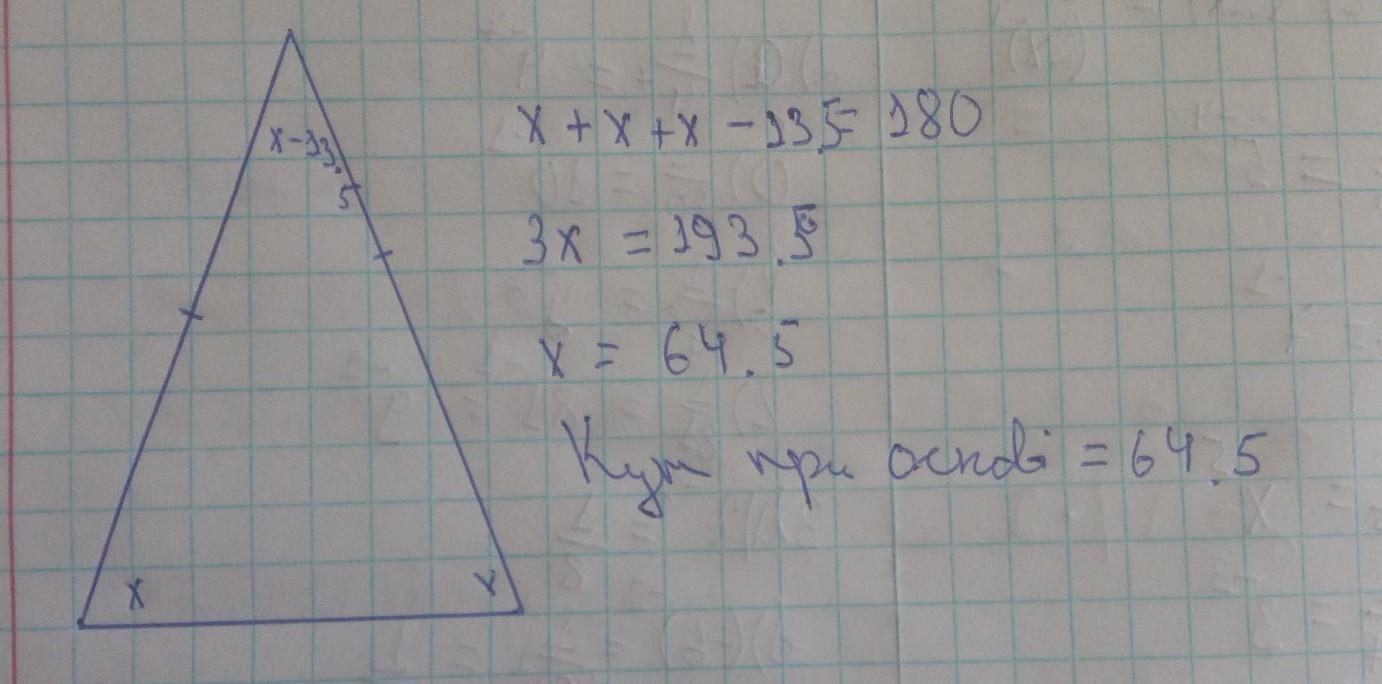 x-13.5
x + x + x - 13.5 = 180
3x = 193.5
x = 64.5
Кут при основі = 64.5
x x